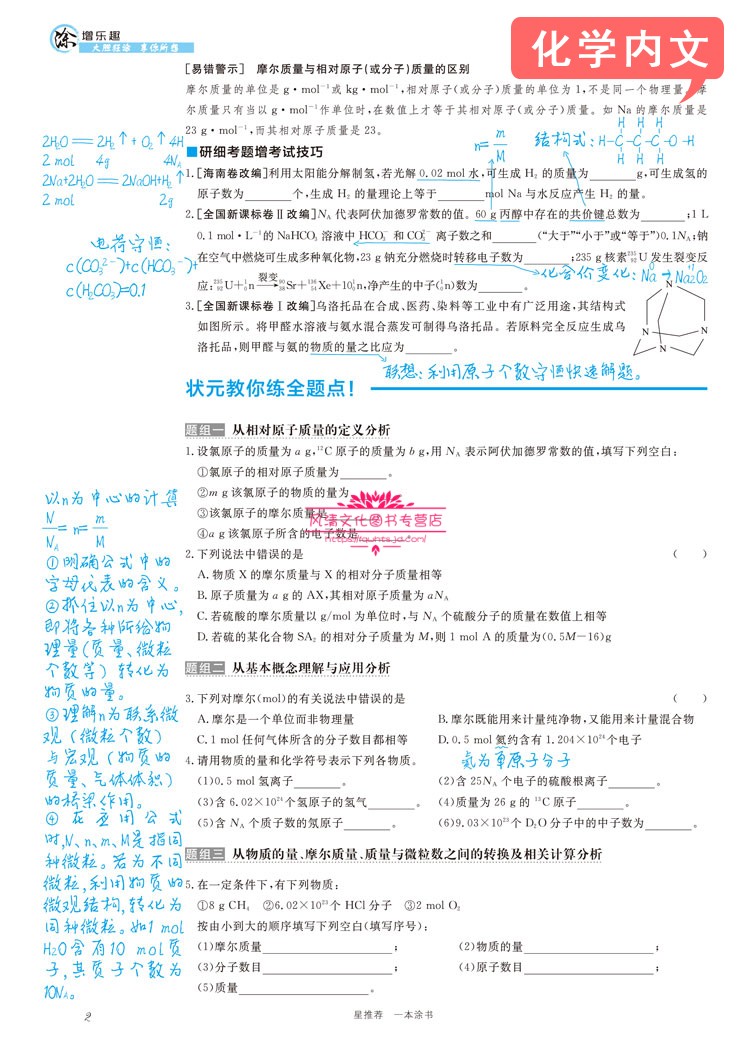 涂 增乐趣
大胆狂涂 享你所想
化学内文
[易错警示] 摩尔质量与相对原子(或分子)质量的区别
摩尔质量的单位是 g·mol⁻¹或 kg·mol⁻¹,相对原子(或分子)质量的单位为 1,不是同一个物理量,摩
尔质量只有当以 g·mol⁻¹作单位时,在数值上才等于其相对原子(或分子)质量。如 Na 的摩尔质量是
23 g·mol⁻¹,而其相对原子质量是 23。
2H₂O══2H₂↑+O₂↑ 4H
2 mol 4g 4Nᴀ
2Na+2H₂O══2NaOH+H₂↑
2 mol 2g
n=m/M
结构式:
H H H
H-C-C-C-O-H
H H H
■研细考题增考试技巧
1.[海南卷改编]利用太阳能分解制氢,若光解 0.02 mol 水,可生成 H₂ 的质量为________g,可生成氢的
原子数为________个,生成 H₂ 的量理论上等于________mol Na 与水反应产生 H₂ 的量。
2.[全国新课标卷Ⅱ改编]Nᴀ 代表阿伏加德罗常数的值。60 g 丙醇中存在的共价键总数为________;1 L
0.1 mol·L⁻¹的 NaHCO₃ 溶液中 HCO₃⁻ 和 CO₃²⁻ 离子数之和________(“大于”“小于”或“等于”)0.1Nᴀ;钠
在空气中燃烧可生成多种氧化物,23 g 钠充分燃烧时转移电子数为________;235 g 核素²³⁵₉₂U 发生裂变反
应:²³⁵₉₂U+¹₀n—裂变→⁹⁰₃₈Sr+¹³⁶₅₄Xe+10¹₀n,净产生的中子(¹₀n)数为________。
电荷守恒:
c(CO₃²⁻)+c(HCO₃⁻)+
c(H₂CO₃)=0.1
化合价变化:Na⁰→Na₂⁺¹O₂
3.[全国新课标卷Ⅰ改编]乌洛托品在合成、医药、染料等工业中有广泛用途,其结构式
如图所示。将甲醛水溶液与氨水混合蒸发可制得乌洛托品。若原料完全反应生成乌
洛托品,则甲醛与氨的物质的量之比应为________。
N
N N
N
联想:利用原子个数守恒快速解题。
状元教你练全题点!
题组一 从相对原子质量的定义分析
1.设氯原子的质量为 a g,¹²C 原子的质量为 b g,用 Nᴀ 表示阿伏加德罗常数的值,填写下列空白:
①氯原子的相对原子质量为________。
②m g 该氯原子的物质的量为
③该氯原子的摩尔质量是
④a g 该氯原子所含的电子数是
风清文化图书专营店
2.下列说法中错误的是 ( )
A.物质 X 的摩尔质量与 X 的相对分子质量相等
B.原子质量为 a g 的 AX,其相对原子质量为 aNᴀ
C.若硫酸的摩尔质量以 g/mol 为单位时,与 Nᴀ 个硫酸分子的质量在数值上相等
D.若硫的某化合物 SA₂ 的相对分子质量为 M,则 1 mol A 的质量为(0.5M−16)g
题组二 从基本概念理解与应用分析
3.下列对摩尔(mol)的有关说法中错误的是 ( )
A.摩尔是一个单位而非物理量 B.摩尔既能用来计量纯净物,又能用来计量混合物
C.1 mol 任何气体所含的分子数目都相等 D.0.5 mol 氦约含有 1.204×10²⁴个电子
氦为单原子分子
4.请用物质的量和化学符号表示下列各物质。
(1)0.5 mol 氢离子________。 (2)含 25Nᴀ 个电子的硫酸根离子________。
(3)含 6.02×10²⁴个氢原子的氢气________。 (4)质量为 26 g 的 ¹³C 原子________。
(5)含 Nᴀ 个质子数的氘原子________。 (6)9.03×10²³个 D₂O 分子中的中子数为________。
题组三 从物质的量、摩尔质量、质量与微粒数之间的转换及相关计算分析
5.在一定条件下,有下列物质:
①8 g CH₄ ②6.02×10²³个 HCl 分子 ③2 mol O₂
按由小到大的顺序填写下列空白(填写序号):
(1)摩尔质量________; (2)物质的量________;
(3)分子数目________; (4)原子数目________;
(5)质量________。
以n为中心的计算
N/Nᴀ=n=m/M
①明确公式中的
字母代表的含义。
②抓住以n为中心,
即将各种所给物
理量(质量、微粒
个数等)转化为
物质的量。
③理解n为联系微
观(微粒个数)
与宏观(物质的
质量、气体体积)
的桥梁作用。
④在应用公式
时,N、n、m、M是指同
种微粒。若为不同
微粒,利用物质的
微观结构,转化为
同种微粒。如1mol
H₂O含有10 mol质
子,其质子个数为
10Nᴀ。
2
星推荐 一本涂书